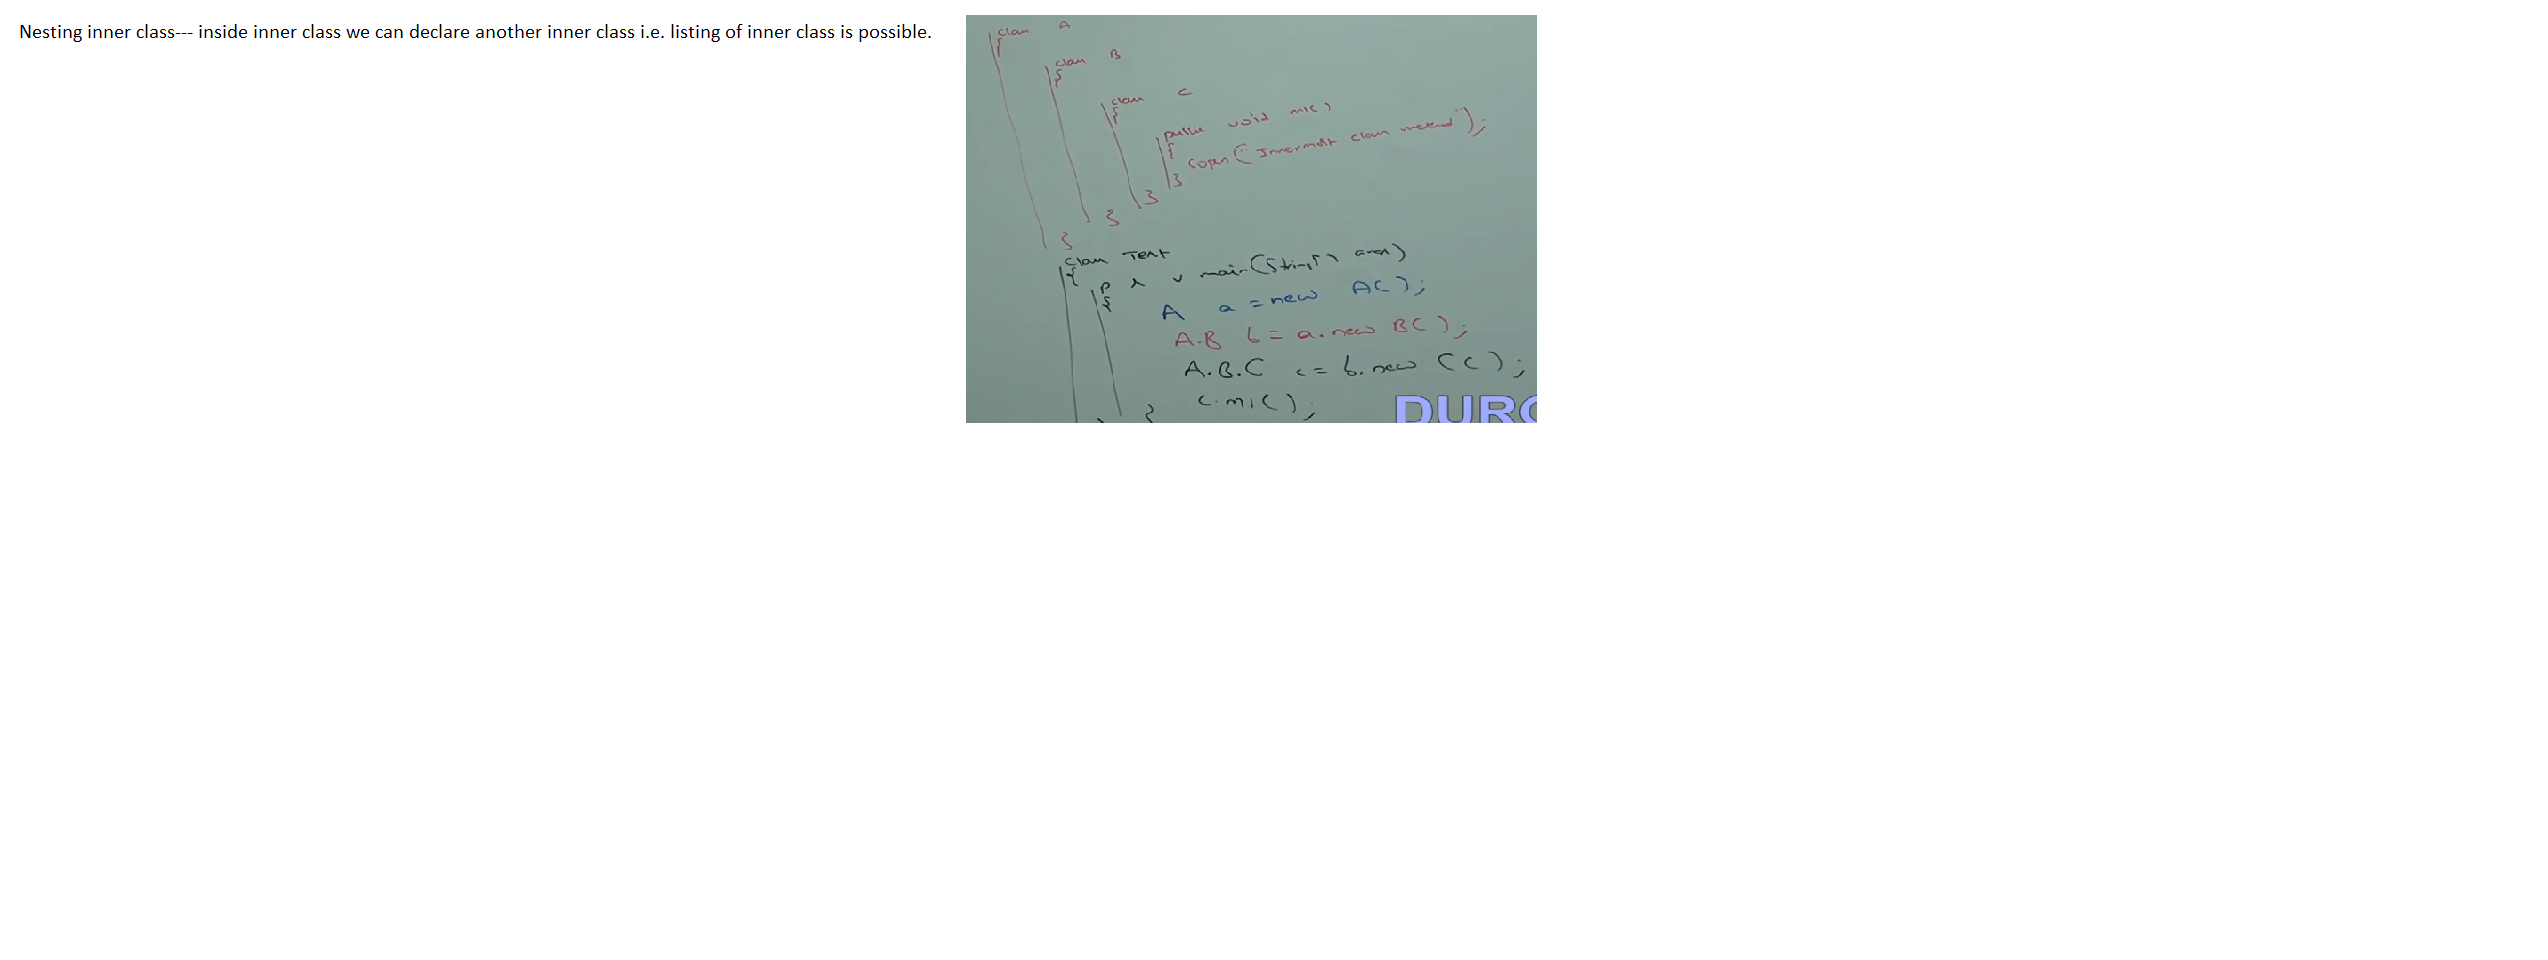 Nesting inner class--- inside inner class we can declare another inner class i.e. listing of inner class is possible.
class A
{
class B
{
class C
{
public void m1()
{
sopln("Innermost class method");
}
}
}
}
class Test
{
p s v main(String[] args)
{
A a = new A();
A.B b = a.new B();
A.B.C c = b.new C();
c.m1();
}
DURG